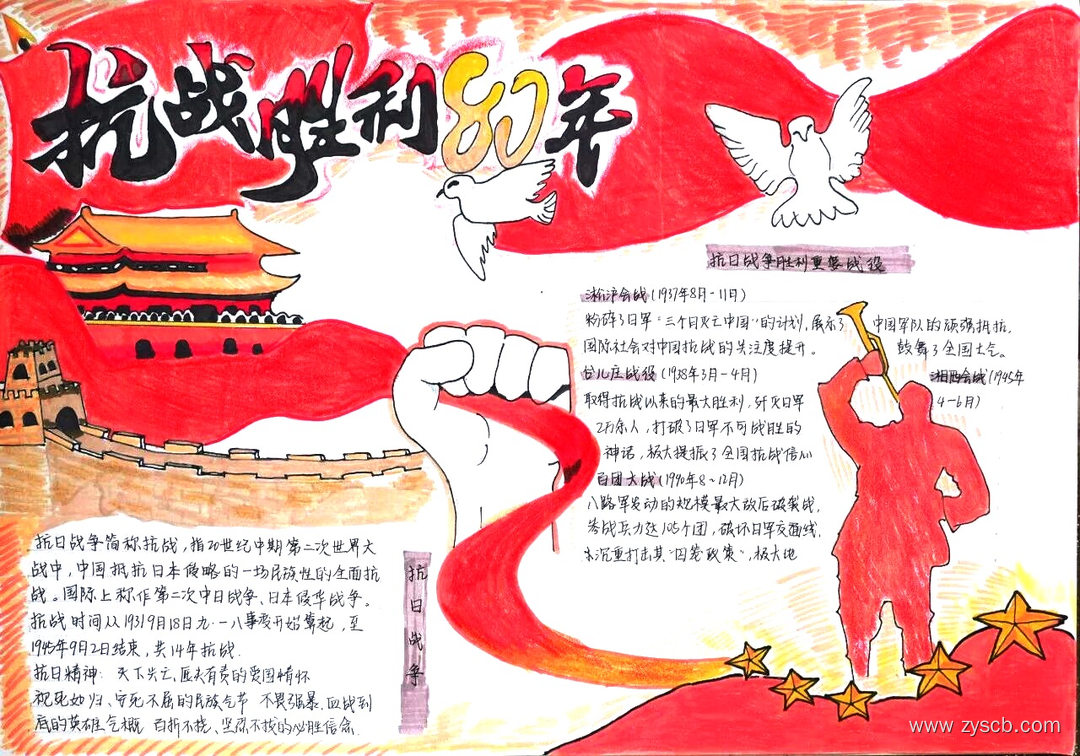 抗战胜利80年
抗日战争胜利重要战役
淞沪会战(1937年8月-11日)
粉碎了日军"三个月灭亡中国"的计划,展示了 中国军队的顽强抵抗,
国际社会对中国抗战的关注度提升。 鼓舞了全国士气。
台儿庄战役(1938年3月-4月)
湘西会战(1945年
取得抗战以来的最大胜利,歼灭日军
4-6月)
2万余人,打破了日军不可战胜的
神话,极大提振了全国抗战信心
百团大战(1940年8~12月)
八路军发动的规模最大敌后破袭战,
参战兵力达105个团,破坏日军交通线,
沉重打击其"囚笼政策",极大地
抗日战争简称抗战,指20世纪中期第二次世界大
战中,中国抵抗日本侵略的一场民族性的全面抗
战。国际上称作第二次中日战争、日本侵华战争。
抗战时间从19319月18日九·一八事变开始算起,至
1945年9月2日结束,共14年抗战.
抗日精神: 天下兴亡,匹夫有责的爱国情怀
视死如归、宁死不屈的民族气节 不畏强暴、血战到
底的英雄气概 百折不挠、坚忍不拔的必胜信念.
抗日战争
www.zyscb.com